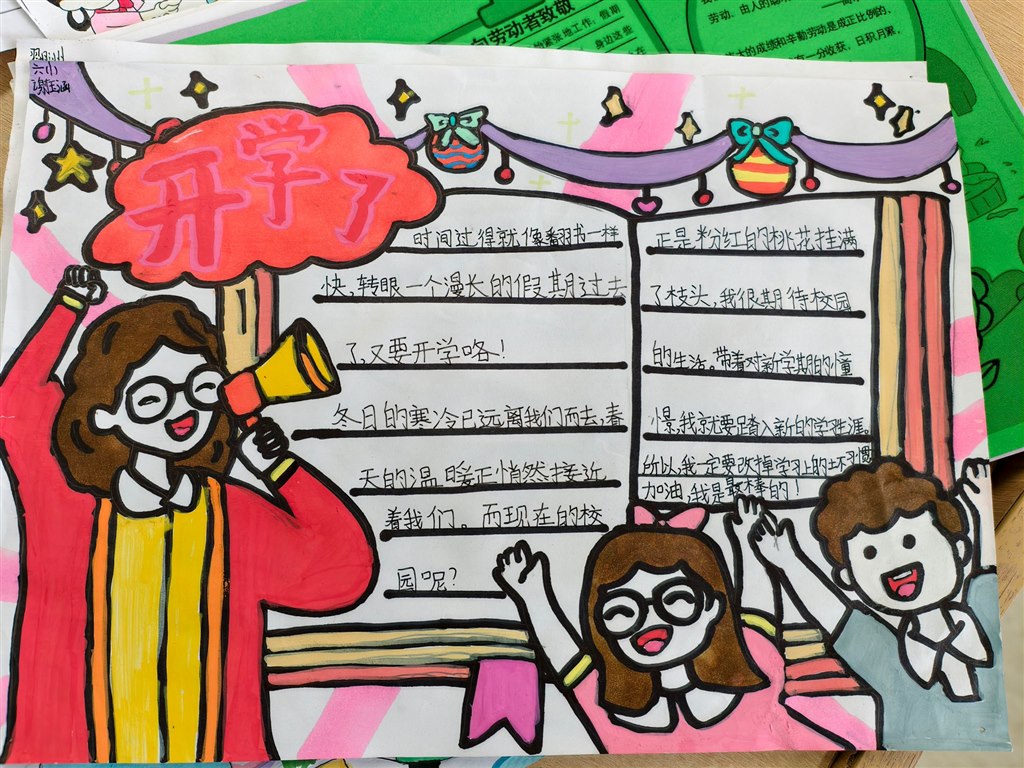 向劳动者致敬
紧张地工作，假期
身边这些
劳动、由人的聪
大的成绩和辛勤劳动是成正比例的，
有一分收获，日积月累，
六小
开学了
时间过得就像翻书一样
快，转眼一个漫长的假期过去
了，又要开学咯！
冬日的寒冷已远离我们而去，春
天的温暖正悄然接近
着我们。而现在的校
园呢？
正是粉红的桃花挂满
了枝头，我很期待校园
的生活。带着对新学期的憧
憬，我就要踏入新的学习生涯。
所以我一定要改掉学习上的坏习惯
加油，我是最棒的！